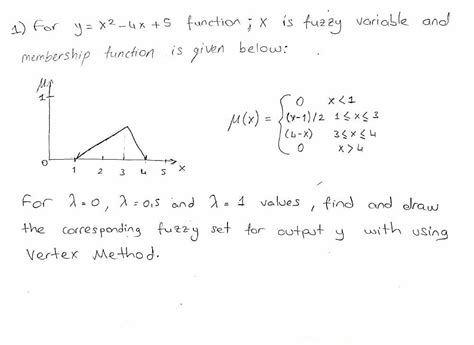 1) For y = x² - 4x + 5 function ; x is fuzzy variable and
membership function is given below:
μ
1
0
1 2 3 4 5 x
μ(x) = { 0 x < 1
(x-1)/2 1 ≤ x ≤ 3
(4-x) 3 ≤ x ≤ 4
0 x > 4
For λ=0, λ=0,5 and λ=1 values, find and draw
the corresponding fuzzy set for output y with using
Vertex Method.